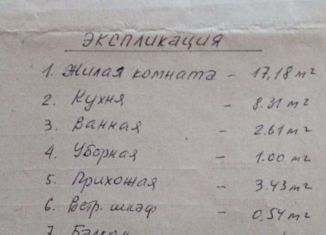 ЭКСПЛИКАЦИЯ
1. Жилая комната – 17,18 м²
2. Кухня – 8.31 м²
3. Ванная – 2.61 м²
4. Уборная – 1.00 м²
5. Прихожая – 3.43 м²
6. Встр. шкаф – 0,54 м²
7. Балкон